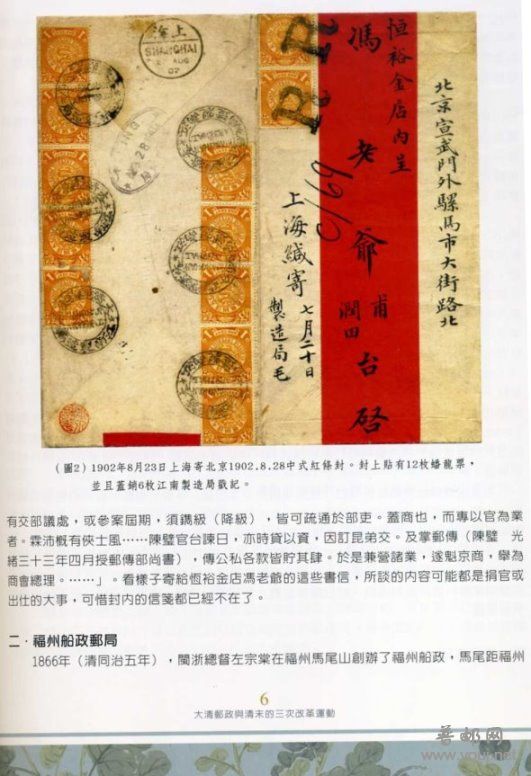 北京宣武門外騾馬市大街路北
恒裕金店內呈
馮老爺 甫潤田 台啓
上海緘寄 七月二十日
製造局毛
R
R
上海
SHANGHAI
AUG
(圖2) 1902年8月23日上海寄北京1902.8.28中式紅條封。封上貼有12枚蟠龍票，
並且蓋銷6枚江南製造局戳記。
有交部議處，或參案屆期，須鐫級（降級），皆可疏通於部吏。蓋商也，而專以官為業
者。霖沛慨有俠士風……陳璧官台諫日，亦時貸以資，因訂昆弟交。及掌郵傳（陳璧　光
緒三十三年四月授郵傳部尚書），傳公私各款皆貯其肆。於是兼營諸業，遂魁京商，舉為
商會總理。……」。看樣子寄給恆裕金店馮老爺的這些書信，所談的內容可能都是捐官或
出仕的大事，可惜封內的信箋都已經不在了。
二．福州船政郵局
1866年（清同治五年），閩浙總督左宗棠在福州馬尾山創辦了福州船政，馬尾距福州
6
大清郵政與清末的三次改革運動
普邮网
www.youpu.net